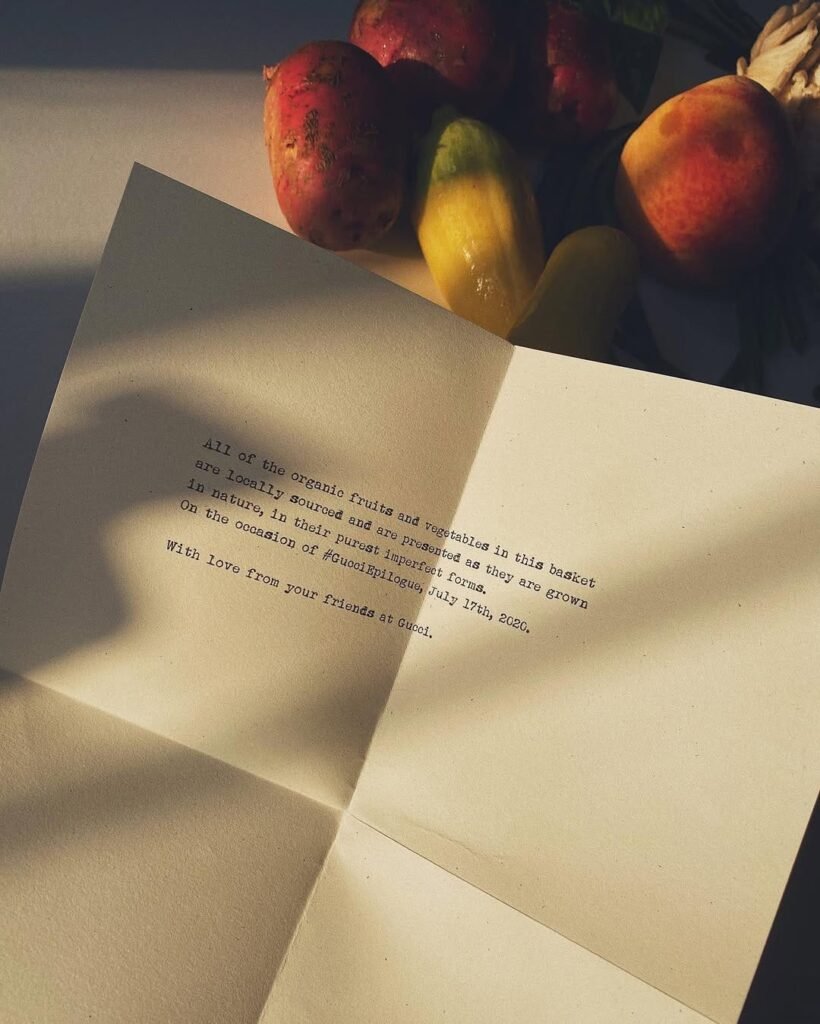 All of the organic fruits and vegetables in this basket
are locally sourced and are presented as they are grown
in nature, in their purest imperfect forms.
On the occasion of #GucciEpilogue, July 17th, 2020.
With love from your friends at Gucci.